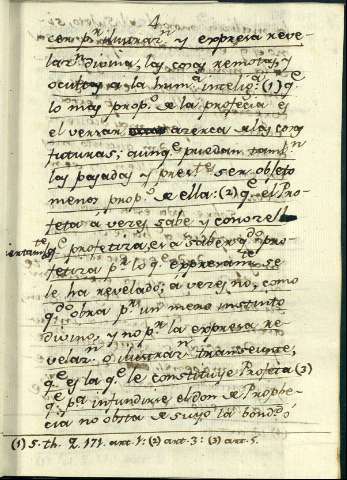 4
cer pr ilustrarn y expresa reve-
larn divina, las cosas remotas, y
ocultas a la huma inteliga: (1) qe
lo mas propo de la profecia es
el versar acerca de las cosas
futuras; aunqe puedan tambn
las pasadas y presttes ser objeto
menos propo de ella: (2) qe el Pro-
feta a veces sabe y conoce
iertamte qe profetiza, es a saber qdo pro-
fetiza pr lo qe expresamte se
le ha revelado; a veces no, como
qdo obra pr un mero instinto
divino, y no pr la expresa re-
velarn o ilustrarn transeunte,
qe es la qe le constituye Profeta (3)
qe pa infundirse el don de Prophe-
cia no obsta de suyo la bondo
(1) S. Th. 2. 171. art. 1: (2) art. 3: (3) art. 5.